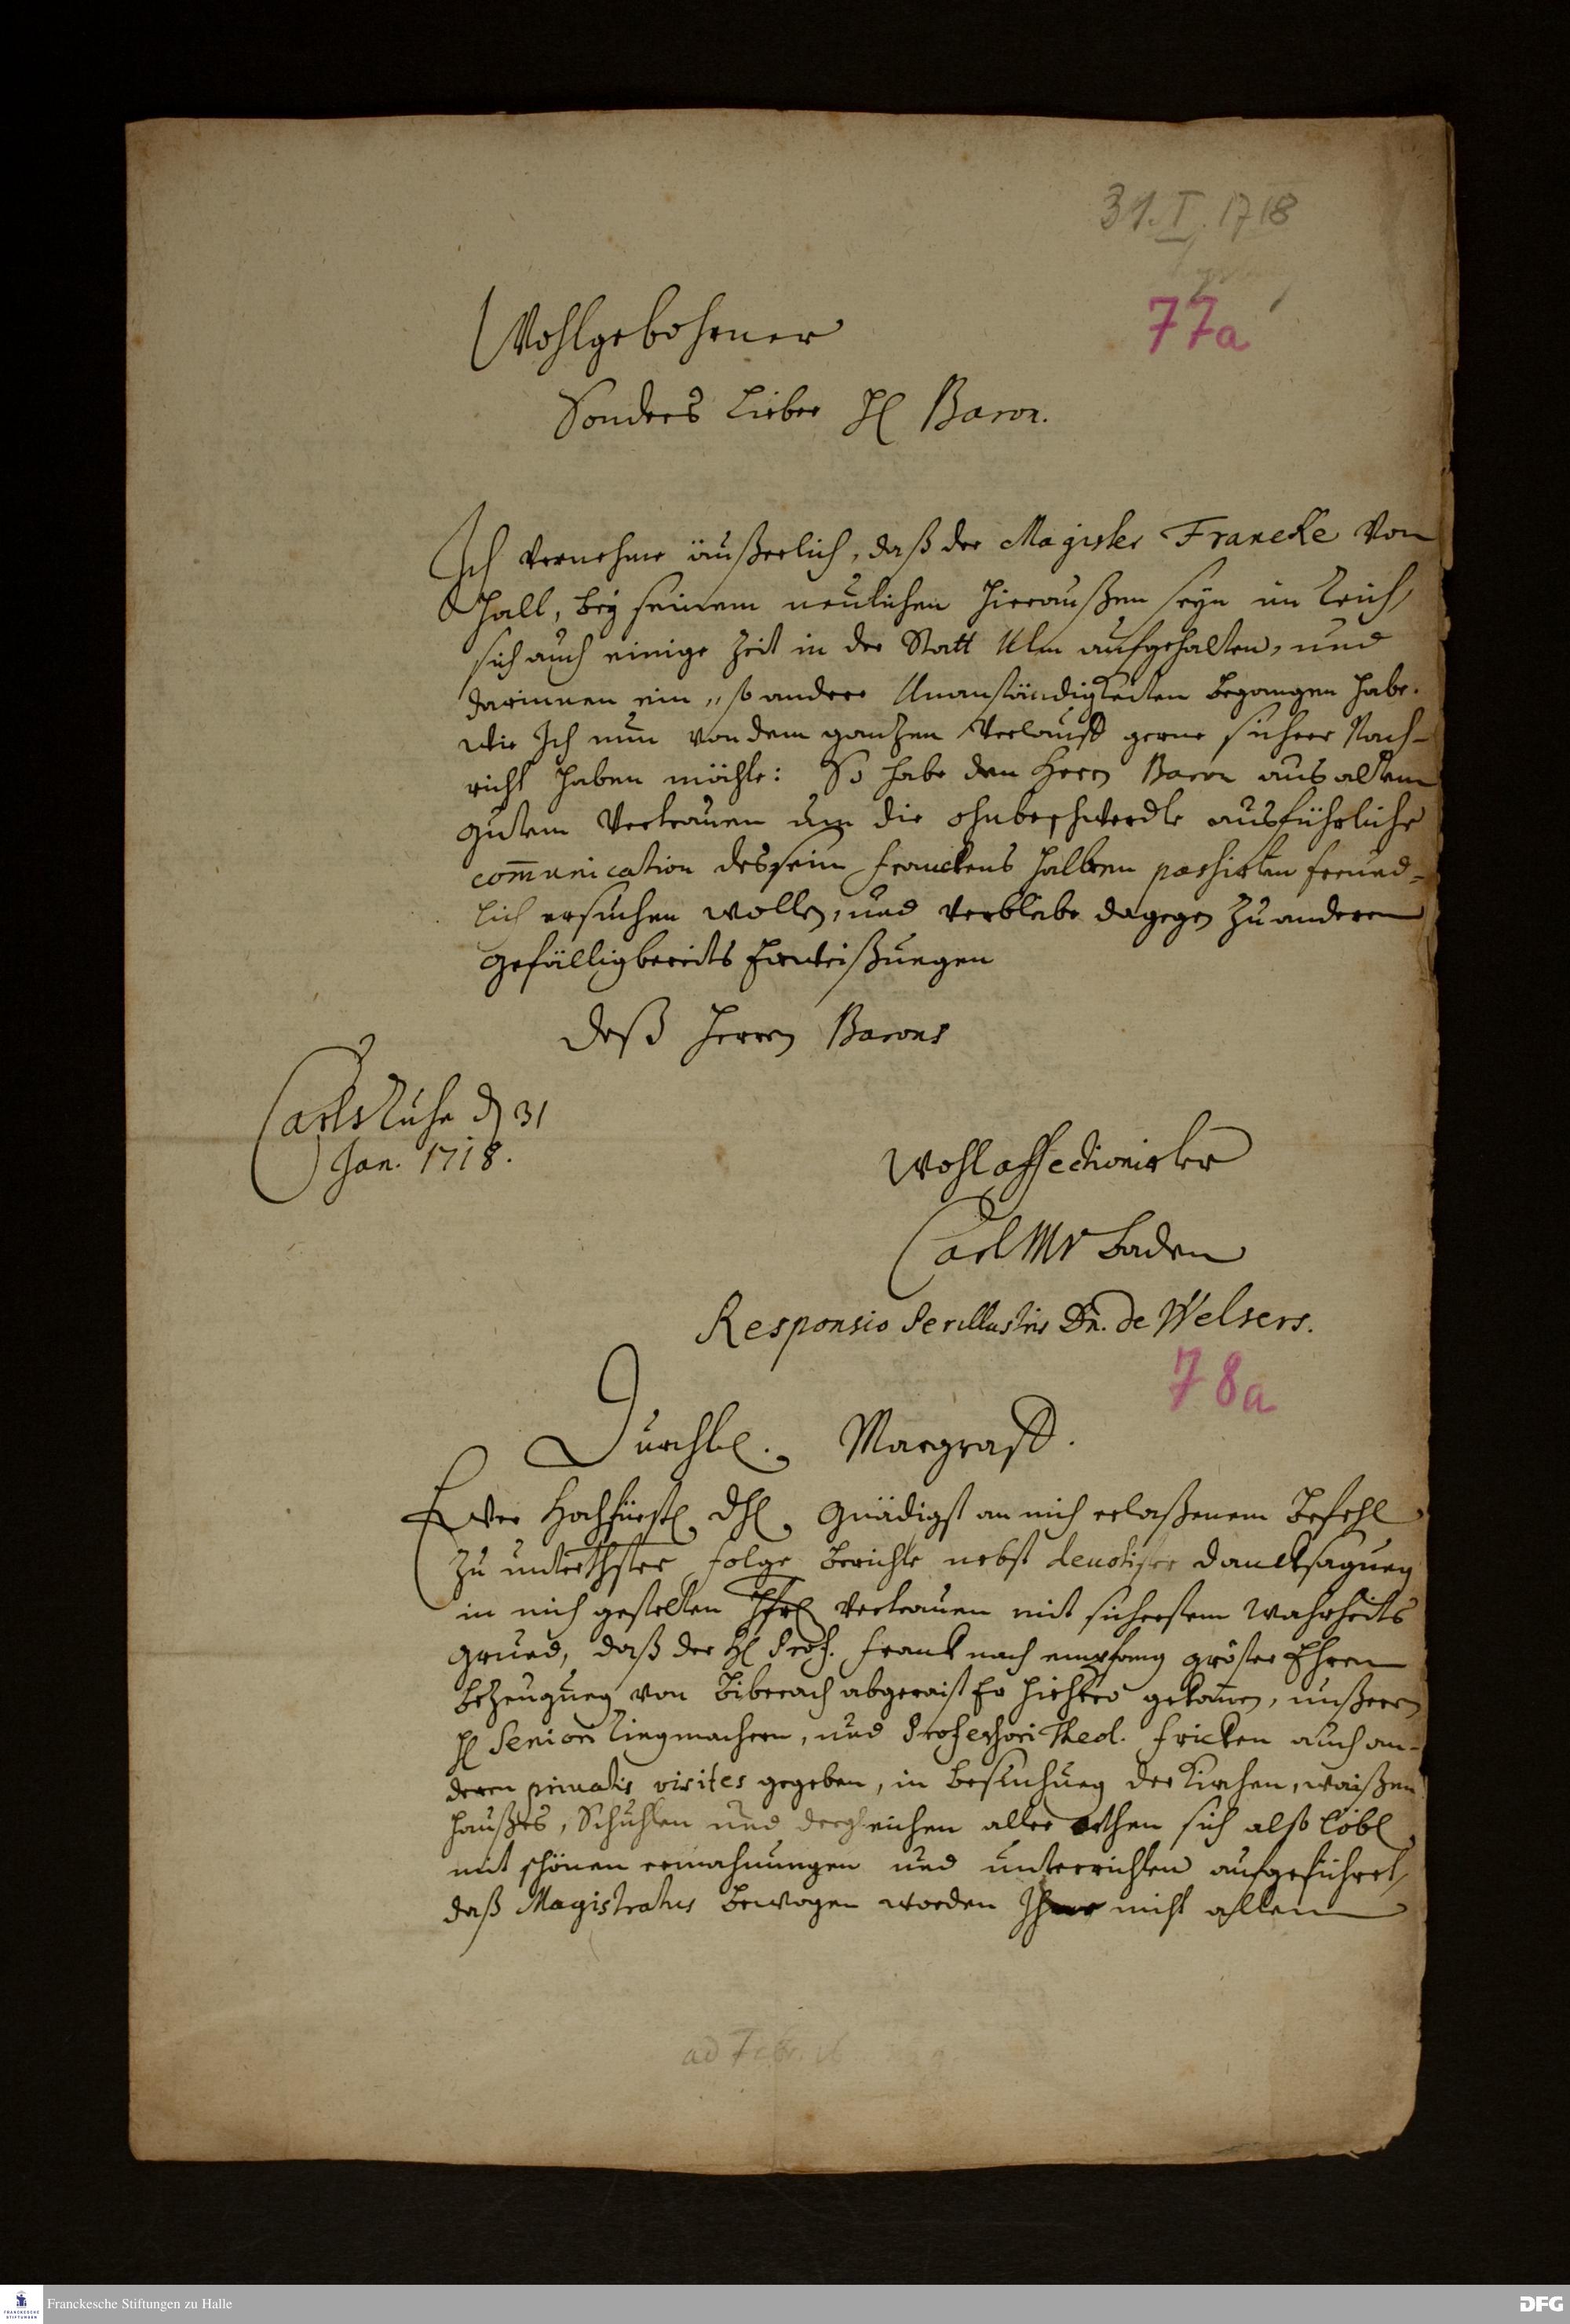 31. I. 1718
77a
Wohlgebohrner
Sonders lieber H Baron.
Ich vernehme äußerlich, daß der Magister Francke Von
Hall, bey seinem neulichen hieraußen seyn im Reich,
sich auch einige Zeit in der Statt Ulm aufgehalten, und
darinnen ein „ so andere Unanständigkeiten begangen habe.
Wie Ich nun von dem gantzen Verlauff gerne sichere Nach-
richt haben möchte: So habe den Herrn Baron aus altem
gutem Vertrauen um die ohnbeschwerdte ausführliche
com̄unication desßein Franckens halben passirten freund-
lich ersuchen wollen, und verbleibe dagegen zu anderen
gefälligkeits Erweißungen
Deß Herren Barons
CarlsRuhe d 31
Jan. 1718.
Wohlaffectionirter
Carl M v Baden
Responsio Perillustris Dn. de Welsers.
78a
Durchl. Marggraff.
Ewer Hochfürstl Dhl. Gnädigst an mich erlaßenem Befehl
zu unterthster folge berichte nebst devotister dancksagung
in mich gestelten vertrauen mit sicherstem Wahrheits
grund, daß der H Prof. Franck nach empfang gröster Ehren
bezeugung von Biberach abgeraist Er hieher gekom̄en, unßerem
H Seniori, und Professori Theol. Fricken auch an-
deren privatis visites gegeben, in besuchung der Kirchen, waißen
haußes, Schuhlen und dergleichen aller orthen sich also löbl
mit schönen ermahnungen und unterrichten aufgeführet,
daß Magistratus bewogen worden Ihme nicht allein
ad Febr.
Franckesche Stiftungen zu Halle
FRANCKESCHE STIFTUNGEN
DFG